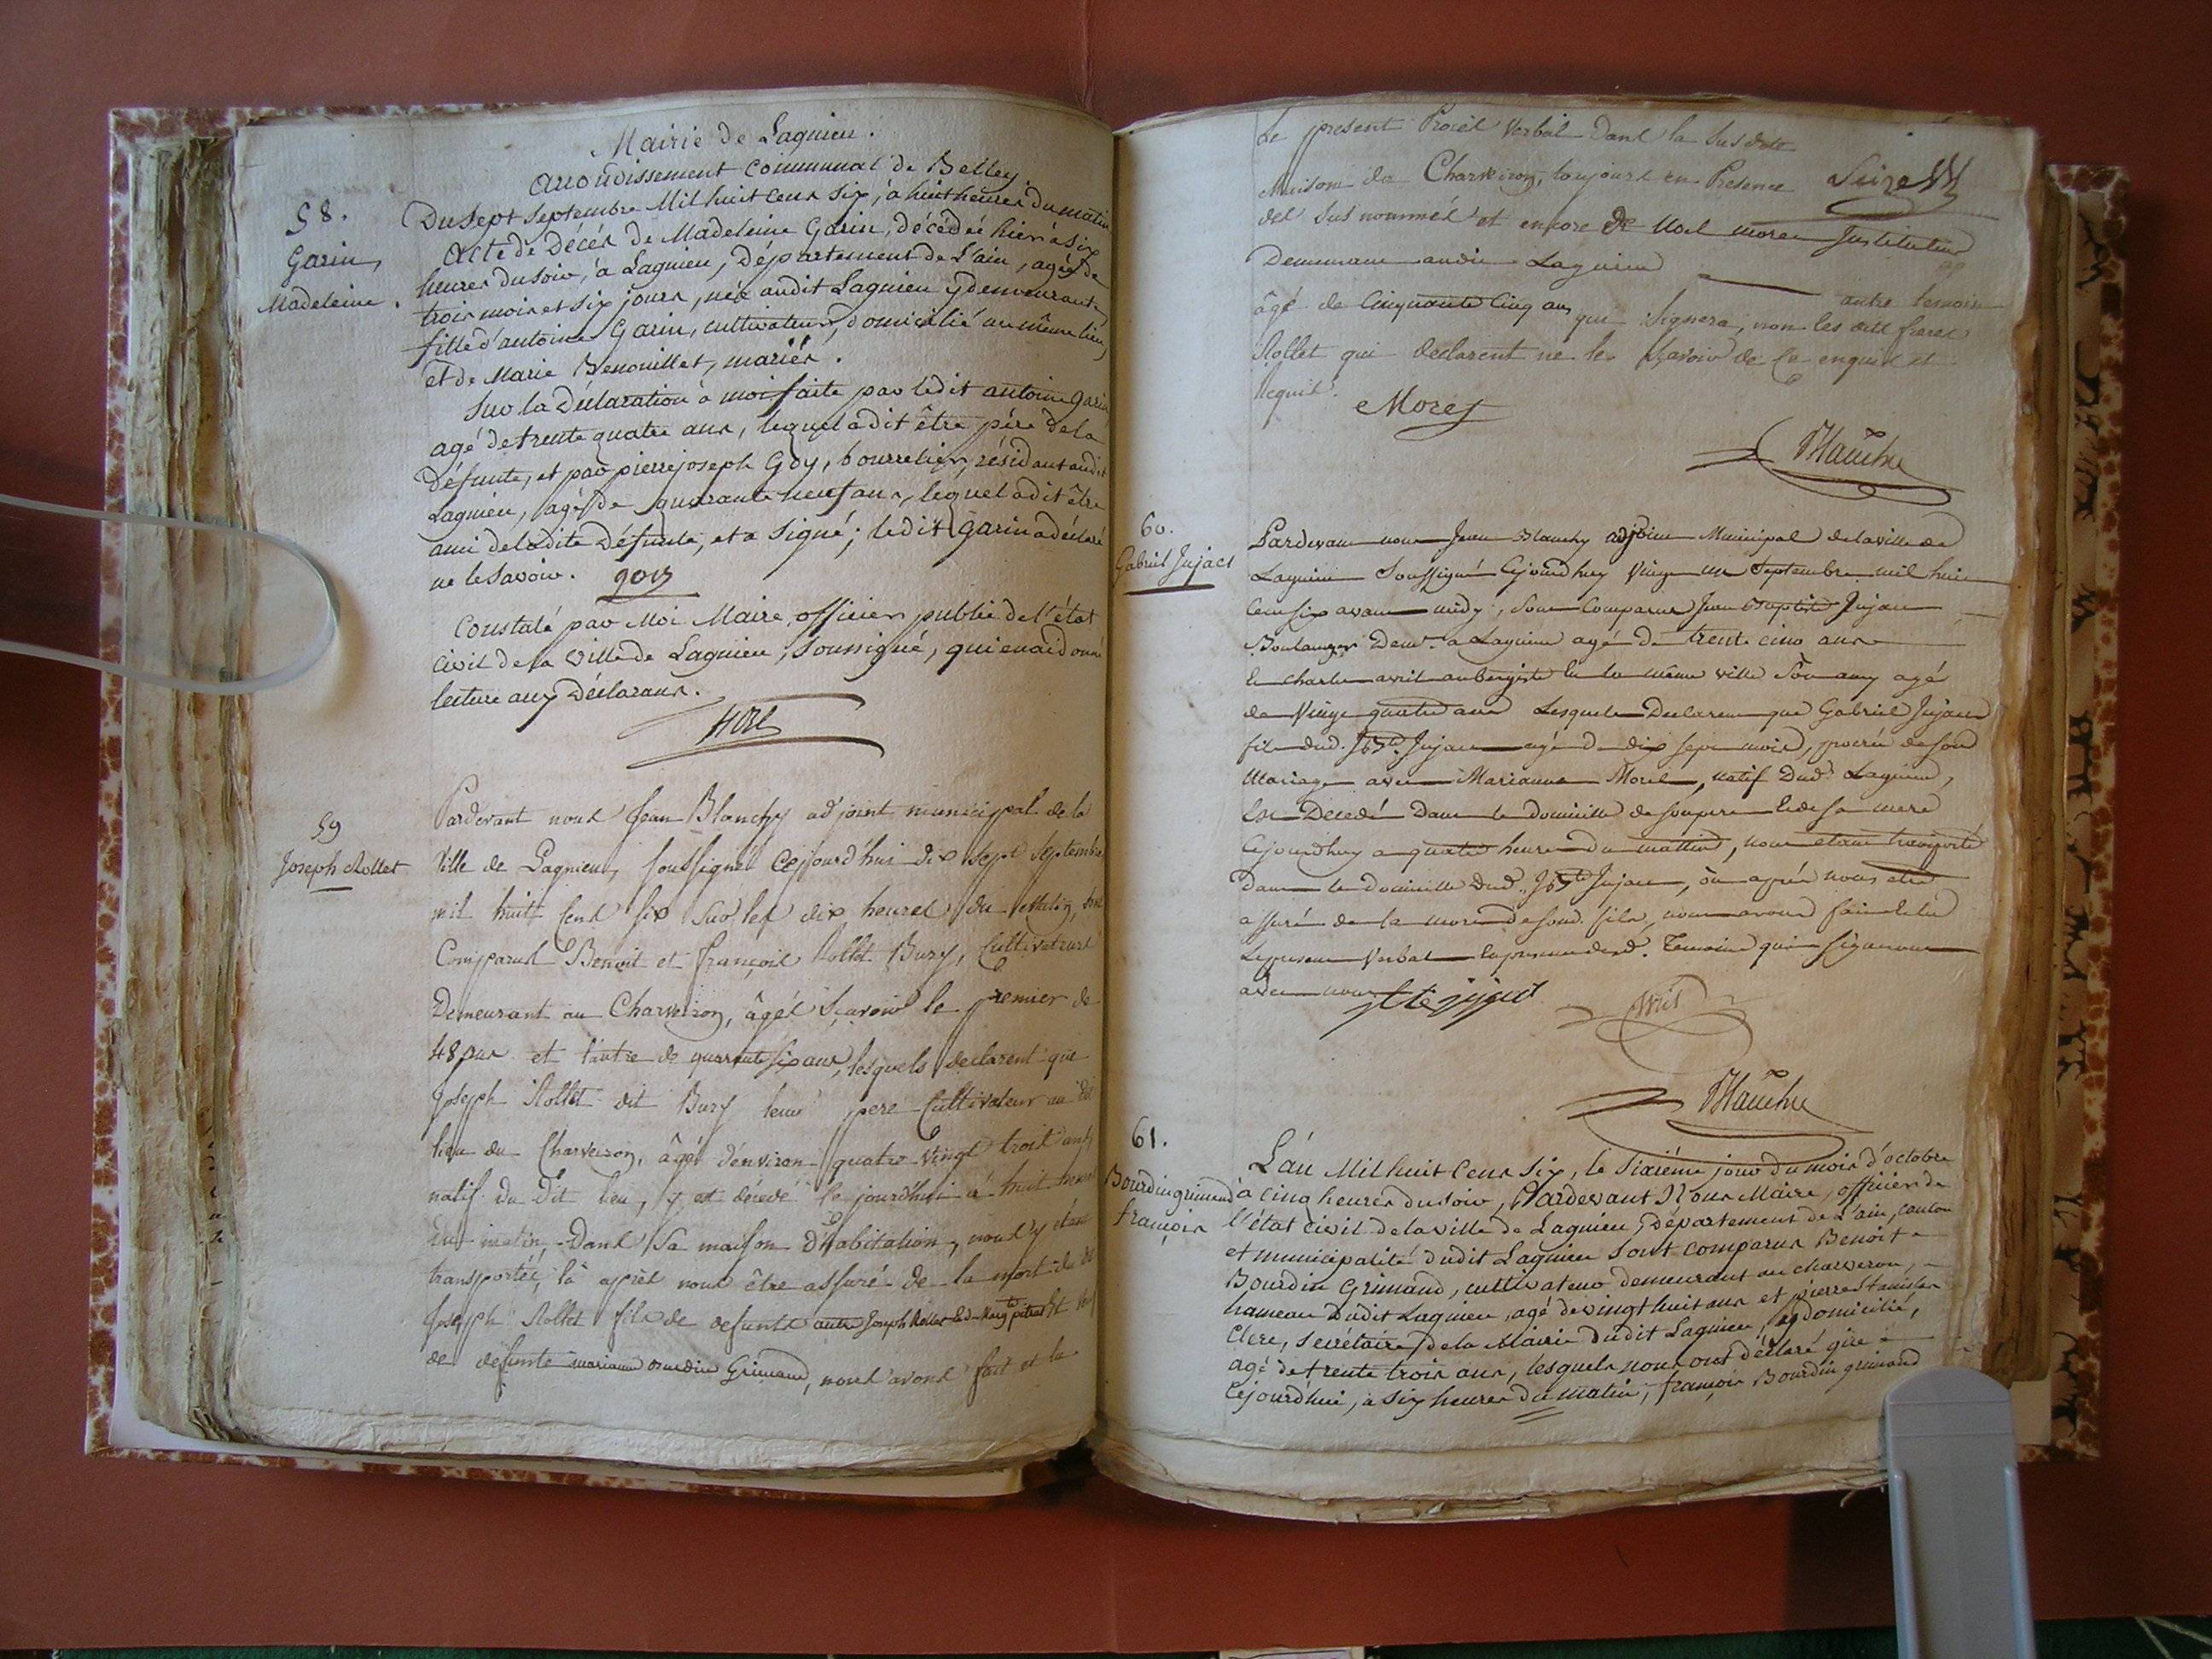 Mairie de Lagnieu.
Arrondissement Communal de Belley.
58.
Garin,
Madeleine.
Du sept septembre Mil huit cens six, à huit heures du matin
Acte de Décès de Madeleine Garin, décédée hier à six
heures du soir, à Lagnieu, Département de l'ain, agée de
trois mois et six jours, née audit Lagnieu y demeurante,
fille d'antoine Garin, cultivateur, domicilié au même lieu,
et de Marie Benouillet, mariés.
Sur la Déclaration à moi faite par ledit antoine Garin
agé de trente quatre ans, lequel a dit être père de la
Défunte, et par pierre joseph Goy, bourrelier, résidant audit
Lagnieu, agé de quarante neuf ans, lequel a dit être
ami de ladite Défunte, et a signé; ledit Garin a déclaré
ne le savoir. goy
Constaté par Moi Maire, officier public de l'état
civil de la ville de Lagnieu, soussigné, qui en ai donné
lecture aux Déclarans.
59
Joseph Rollet
Pardevant nous Jean Blanchy adjoint municipal de la
Ville de Lagnieu, soussigné Cejourd'hui dix sept Septembre
mil huit Cens six sur les dix heures du matin, sont
Comparus Benoit et françois Rollet Bury, Cultivateurs
Demeurant au Charveiron, âgés Sçavoir le premier de
48 ans et l'autre de quarante six ans, lesquels declarent que
Joseph Rollet dit Bury leur pere Cultivateur au dit
lieu du Charveiron, âgé d'environ quatre vingt trois ans
natif du Dit lieu, y est décédé ce jourd'hui à huit heures
du matin, Dans Sa maison d'habitation, nous y étant
transportés, là après nous être assuré de la mort du dit
Joseph Rollet fils de defunts autre Joseph Rollet et
de defunte mariane Bourdin Grimaud, nous avons fait et lu
Le present Procès Verbal Dans la Susdite
Maison de Charveiron, toujours en Presence Seize
des Sus nommés et encore de Noel morel Instituteur
Demeurant audit Lagnieu
autre temoin
âgé de Cinquante Cinq ans qui Signera, non les dits freres
Rollet qui declarent ne le Sçavoir de Ce enquis et
Requis.
Morel
Blanchy
60.
Gabriel Jujat
Pardevant nous Jean Blanchy adjoint Municipal de la ville de
Lagnieu Soussigné Cejourdhuy Vingt un Septembre mil huit
Cent six avant midy, sont Comparus Jean Baptiste Jujat
Boulanger Demt. a Lagnieu agé de trente cinq ans
et Charles avril aubergiste en la même ville Son amy agé
de Vingt quatre ans Lesquels Declarent que Gabriel Jujat
fils dud. Jujat agé de dix sept mois, procréé de son
Mariage avec Marianne Morel, natif Dud. Lagnieu,
Est Decedé Dans le domicille de son pere et de sa mere
Cejourdhuy a quatre heures du mattin, nous etant transporté
Dans le domicille Dud. Jujat, ou après nous etre
assuré de la mort de son d. fils, nous avons fait et lu
Le present Verbal en presence desd. Temoins qui signeront
avec nous
Blanchy
61.
Bourdin grimaud
françois
L'an Mil huit Cens Six, le Sixième jour du mois d'octobre
à cinq heures du soir, Pardevant Nous Maire, officier de
l'état civil de la ville de Lagnieu, Département de l'ain, canton
et municipalité dudit Lagnieu sont comparus Benoît
Bourdin Grimaud, cultivateur demeurant au charveron,
hameau dudit Lagnieu, agé de vingt huit ans et pierre Stanislas
Clerc, secrétaire de la Mairie dudit Lagnieu, y domicilié,
agé de trente trois ans, lesquels nous ont déclaré que
Cejourd'hui, à six heures du matin, françois Bourdin grimaud